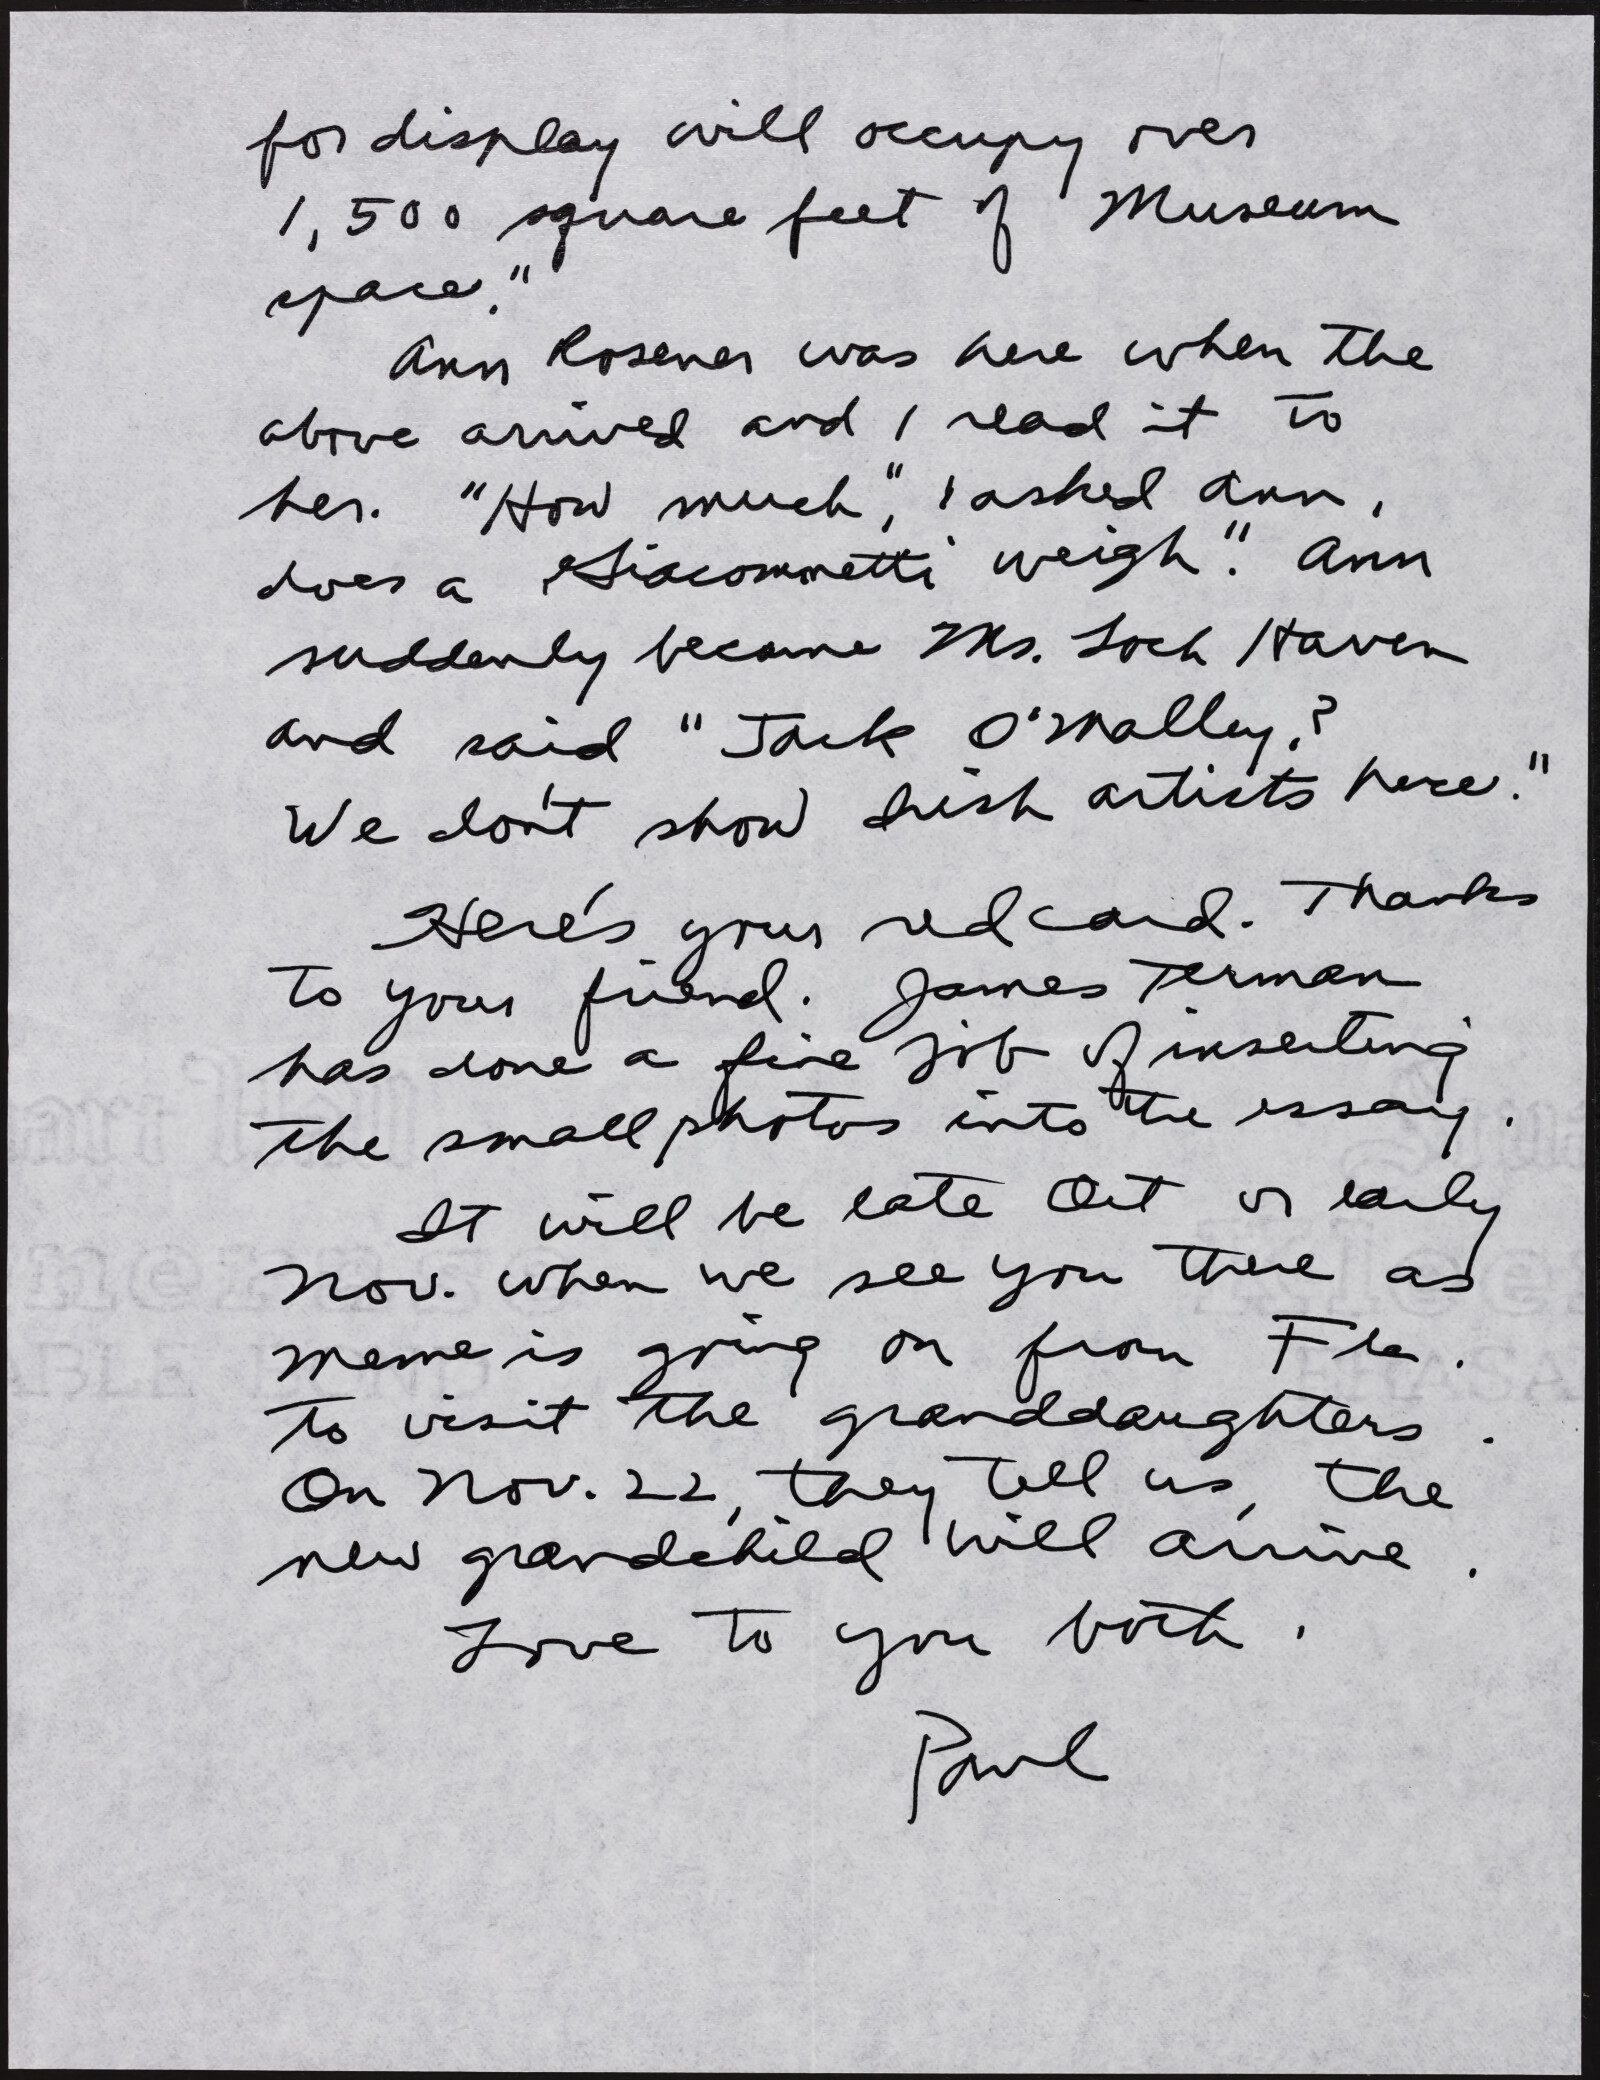 for display will occupy over
1,500 square feet of Museum
space."
Ann Rosener was here when the
above arrived and I read it to
her. "How much", I asked Ann,
does a Giacommetti weigh". Ann
suddenly became Ms. Loch Haven
and said "Jack O'Malley?
We don't show Irish artists here."
Here's your red card. Thanks
to your friend. James Terman
has done a fine job of inserting
the small photos into the essay.
It will be late Oct or early
Nov. when we see you there as
Meme is going on from Fla.
to visit the granddaughters.
On Nov. 22, they tell us, the
new grandchild will arrive.
Love to you both.
Paul